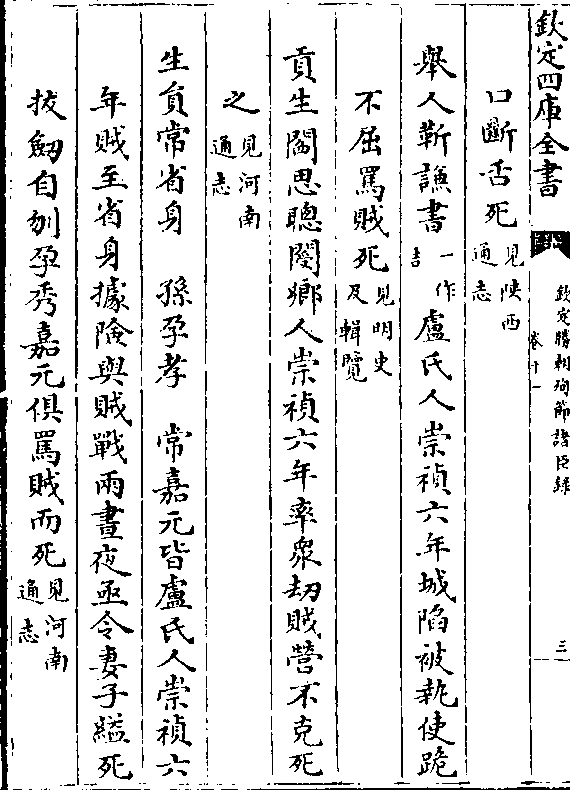 欽定四庫全書
欽定勝朝殉節諸臣録
卷十一
三
口斷舌死見陜西通志
舉人靳謙書一作吉盧氏人崇禎六年城陷被執使跪
不屈罵賊死見明史及輯覽
貢生閻思聰閿鄉人崇禎六年率衆劫賊營不克死
之見河南通志
生員常省身 孫孕孝 常嘉元皆盧氏人崇禎六
年賊至省身據險與賊戰兩晝夜亟令妻子縊死
拔劒自刎孕秀嘉元俱罵賊而死見河南通志